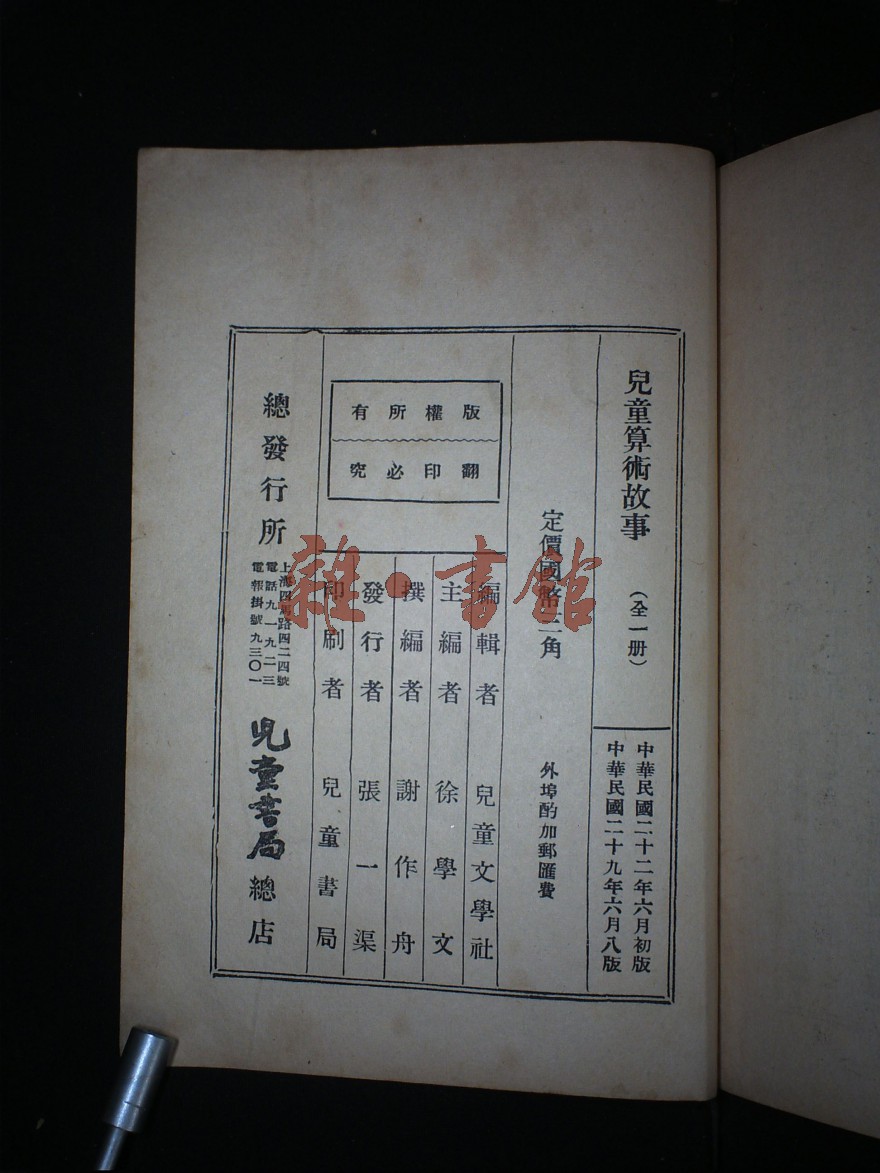 兒童算術故事（全一册）
中華民國二十二年六月初版
中華民國二十九年六月八版
定價國幣三角
外埠酌加郵匯費
版權所有
翻印必究
編輯者 兒童文學社
主編者 徐學文
撰編者 謝作舟
發行者 張一渠
印刷者 兒童書局
總發行所
上海四馬路四二四號
電話九一九二三
電報掛號九三〇一
兒童書局總店
雜·書館